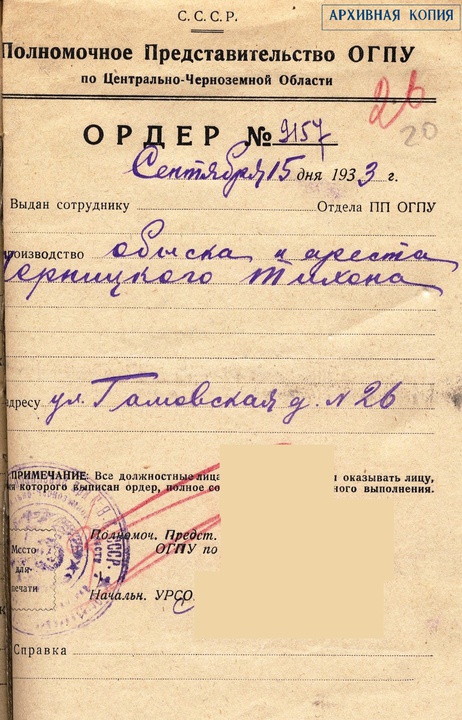 С. С. С. Р.
АРХИВНАЯ КОПИЯ
Полномочное Представительство ОГПУ
по Центрально-Черноземной Области
26
20
ОРДЕР № 9157
Сентября 15 дня 1933 г.
Выдан сотруднику Отдела ПП ОГПУ
производство обыска и ареста
Черницкого Тихона
адресу ул. Тамовская д. N 26
ПРИМЕЧАНИЕ: Все должностные лица оказывать лицу,
которого выписан ордер, полное выполнения.
Полномоч. Предст.
ОГПУ по
Место
для
печати
Начальн. УРСО
Справка